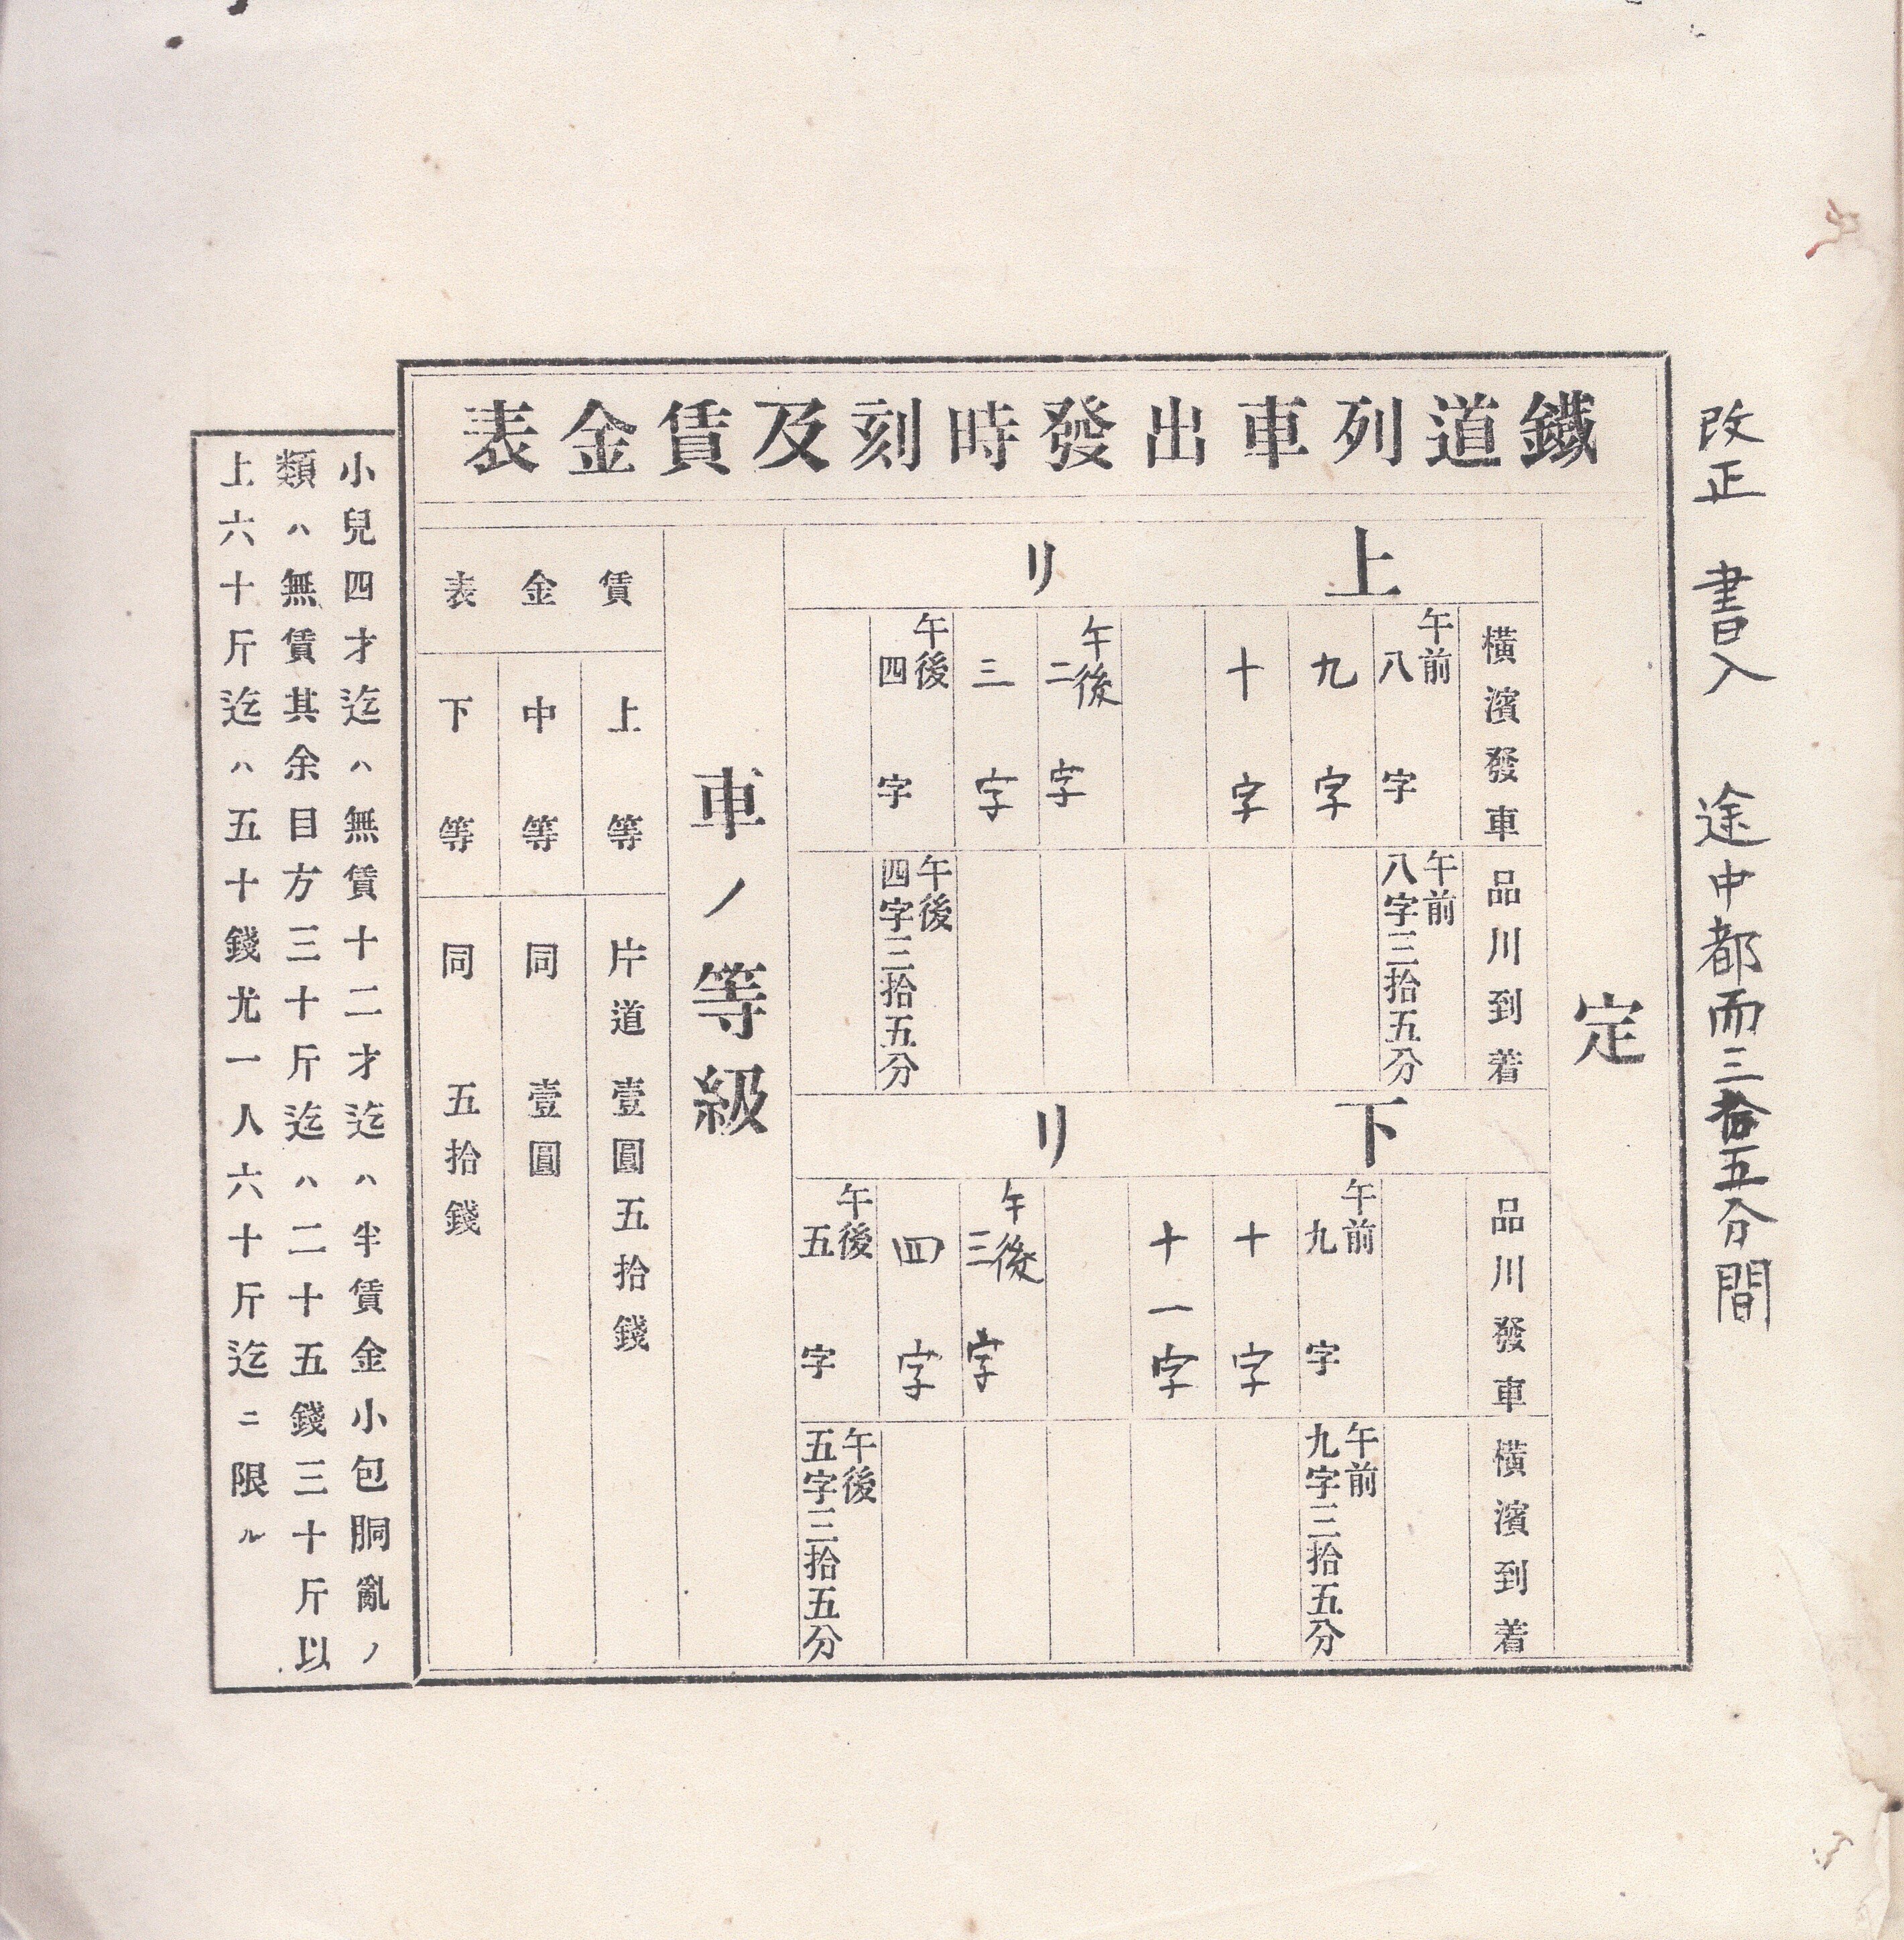 改正 書入 途中都而三拾五分間
鐵道列車出發時刻及賃金表
定
上リ
橫濱發車
午前八字
九字
十字
午後二字
三字
午後四字
品川到着
午前八字三拾五分
午後四字三拾五分
下リ
品川發車
午前九字
十字
十一字
午後三字
四字
午後五字
橫濱到着
午前九字三拾五分
午後五字三拾五分
車ノ等級
賃金表
上等 片道 壹圓五拾錢
中等 同 壹圓
下等 同 五拾錢
小兒四才迄ハ無賃十二才迄ハ半賃金小包胴亂ノ
類ハ無賃其余目方三十斤迄ハ二十五錢三十斤以
上六十斤迄ハ五十錢尤一人六十斤迄ニ限ル